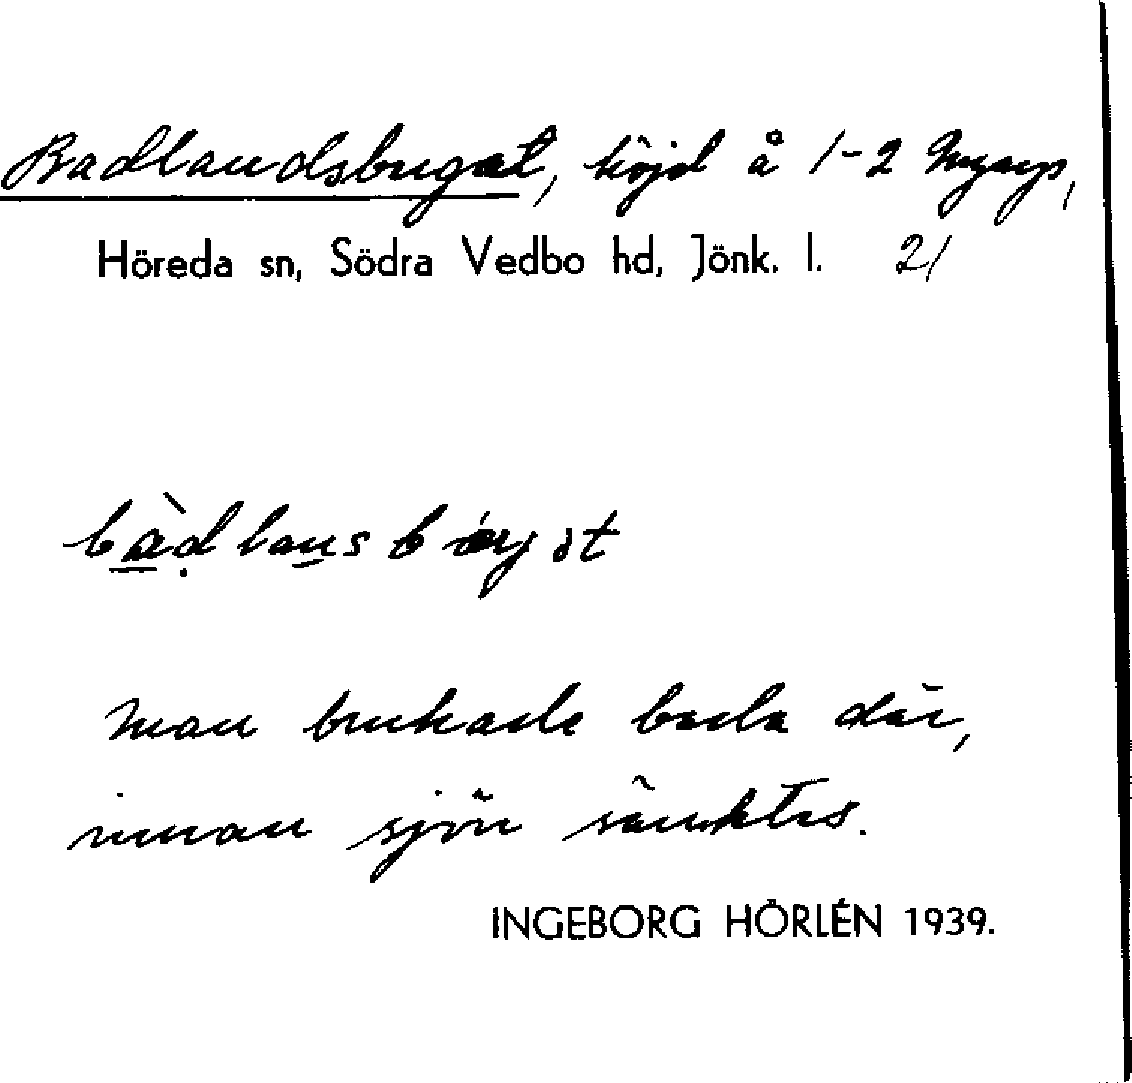 Badlandsberget, höjd å 1-2 Myarp,
Höreda sn, Södra Vedbo hd, Jönk. l. 21
man brukade bada där,
innan sjön sänktes.
INGEBORG HÖRLÉN 1939.